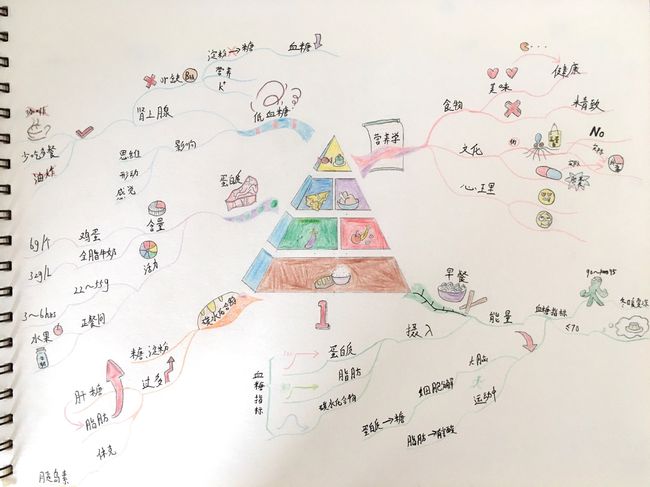 淀粉→糖
血糖
营养
K⁺
缺
肾上腺
低血糖
影响
思维
行动
感觉
少吃多餐
油炸
蛋白质
含量
鸡蛋
6g/个
全脂牛奶
32g/L
活力
22~55g
3~6hrs
正餐间
水果
碳水化合物
糖.淀粉
过多
肝糖
脂肪
体壳
胰岛素
营养学
食物
美味
健康
精致
文化
No
心理
早餐
能量
血糖指标
<70
摄入
蛋白质
脂肪
碳水化合物
血糖指标
大脑
运动
细胞分解
蛋白质→糖
1